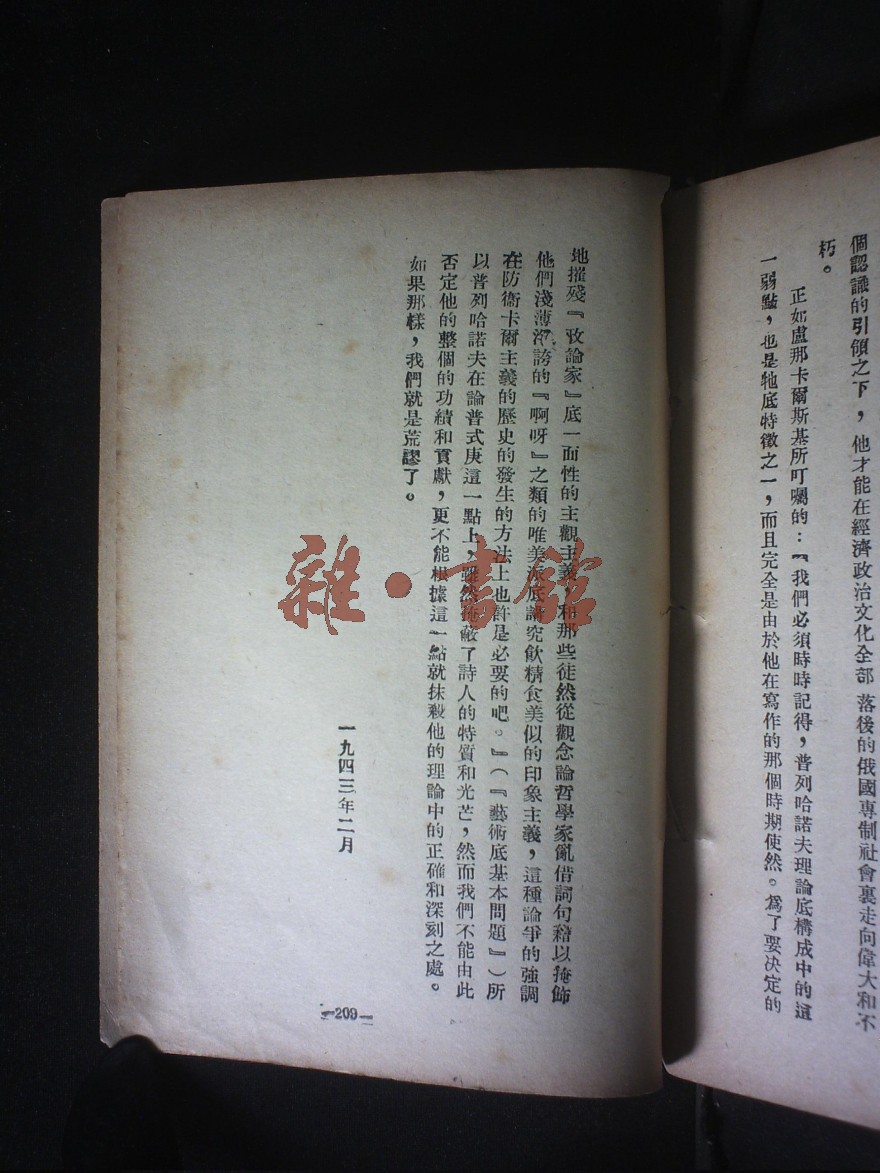 個認識的引領之下，他才能在經濟政治文化全部落後的俄國專制社會裏走向偉大和不
朽。
正如盧那卡爾斯基所叮囑的：『我們必須時時記得，普列哈諾夫理論底構成中的這
一弱點，也是牠底特徵之一，而且完全是由於他在寫作的那個時期使然。爲了要決定的
地摧殘『攷論家』底一面性的主觀主義，和那些徒然從觀念論哲學家亂借詞句藉以掩飾
他們淺薄浮誇的『啊呀』之類的唯美派底講究飲精食美似的印象主義，這種論爭的強調
在防衞卡爾主義的歷史的發生的方法上也許是必要的吧。』（『藝術底基本問題』）所
以普列哈諾夫在論普式庚這一點上，雖然掩蔽了詩人的特質和光芒，然而我們不能由此
否定他的整個的功績和貢獻，更不能根據這一點就抹殺他的理論中的正確和深刻之處。
如果那樣，我們就是荒謬了。
一九四三年二月
—209—
雜·書館